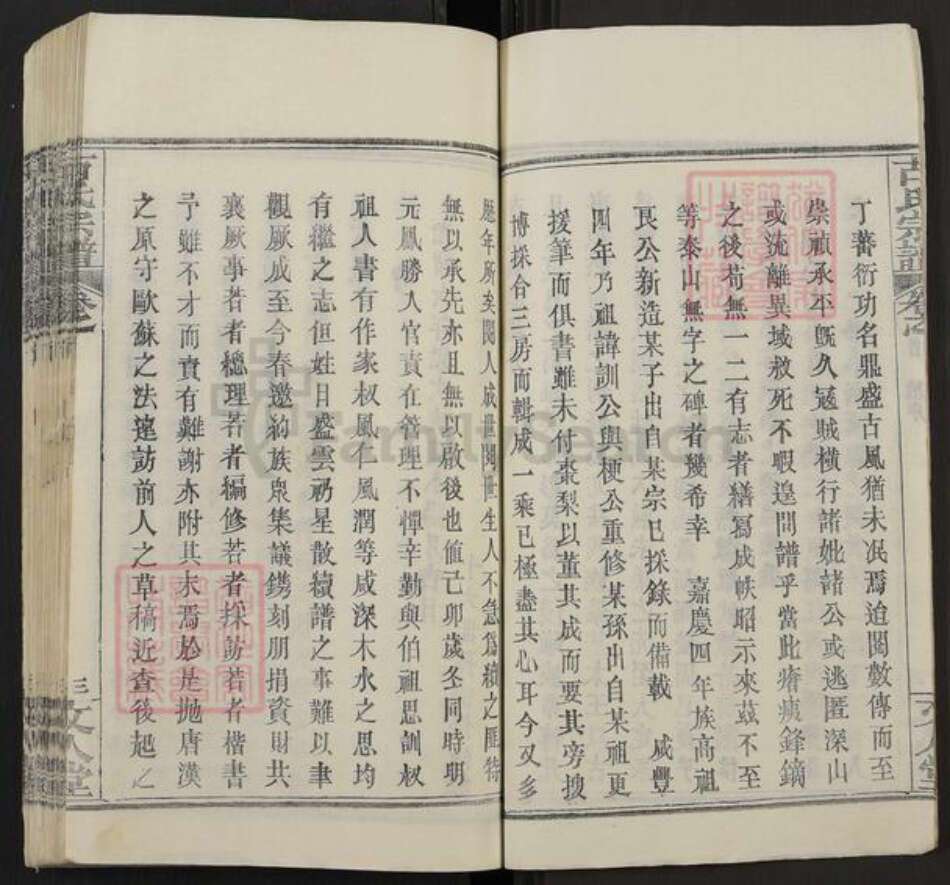 丁蕃衍功名鼎盛古風猶未冺焉迨閱數傳而至
崇禎承平旣久寇賊橫行諸妣諸公或逃匿深山
或流離異域救死不暇遑問譜乎當此瘡痍鋒鏑
之後苟無一二有志者繕寫成帙昭示來茲不至
等泰山無字之碑者幾希幸 嘉慶四年族高祖
艮公新造某子出自某宗已採錄而備載 咸豐
四年乃祖諱訓公與梗公重修某孫出自某祖更
援筆而俱書雖未付棗梨以董其成而要其旁搜
博採合三房而輯成一乘已極盡其心耳今又多
歷年所矣閱人成世閱世生人不急爲續之匪特
無以承先亦且無以啟後也值己卯歲冬同時明
元鳳勝人官責在管理不憚辛勤與伯祖思訓叔
祖人書有作家叔風仁風潤等咸深木水之思均
有繼之志但姓日盛雲礽星散續譜之事難以聿
觀厥成至今春邀約族衆集議鐫刻朋捐資財共
襄厥事若者總理若者編修若者採訪若者楷書
予雖不才而責有難謝亦附其末焉於是拋唐漢
之原守歐蘇之法遠訪前人之草稿近查後起之
三
古氏宗譜
卷之一
FamilySearch